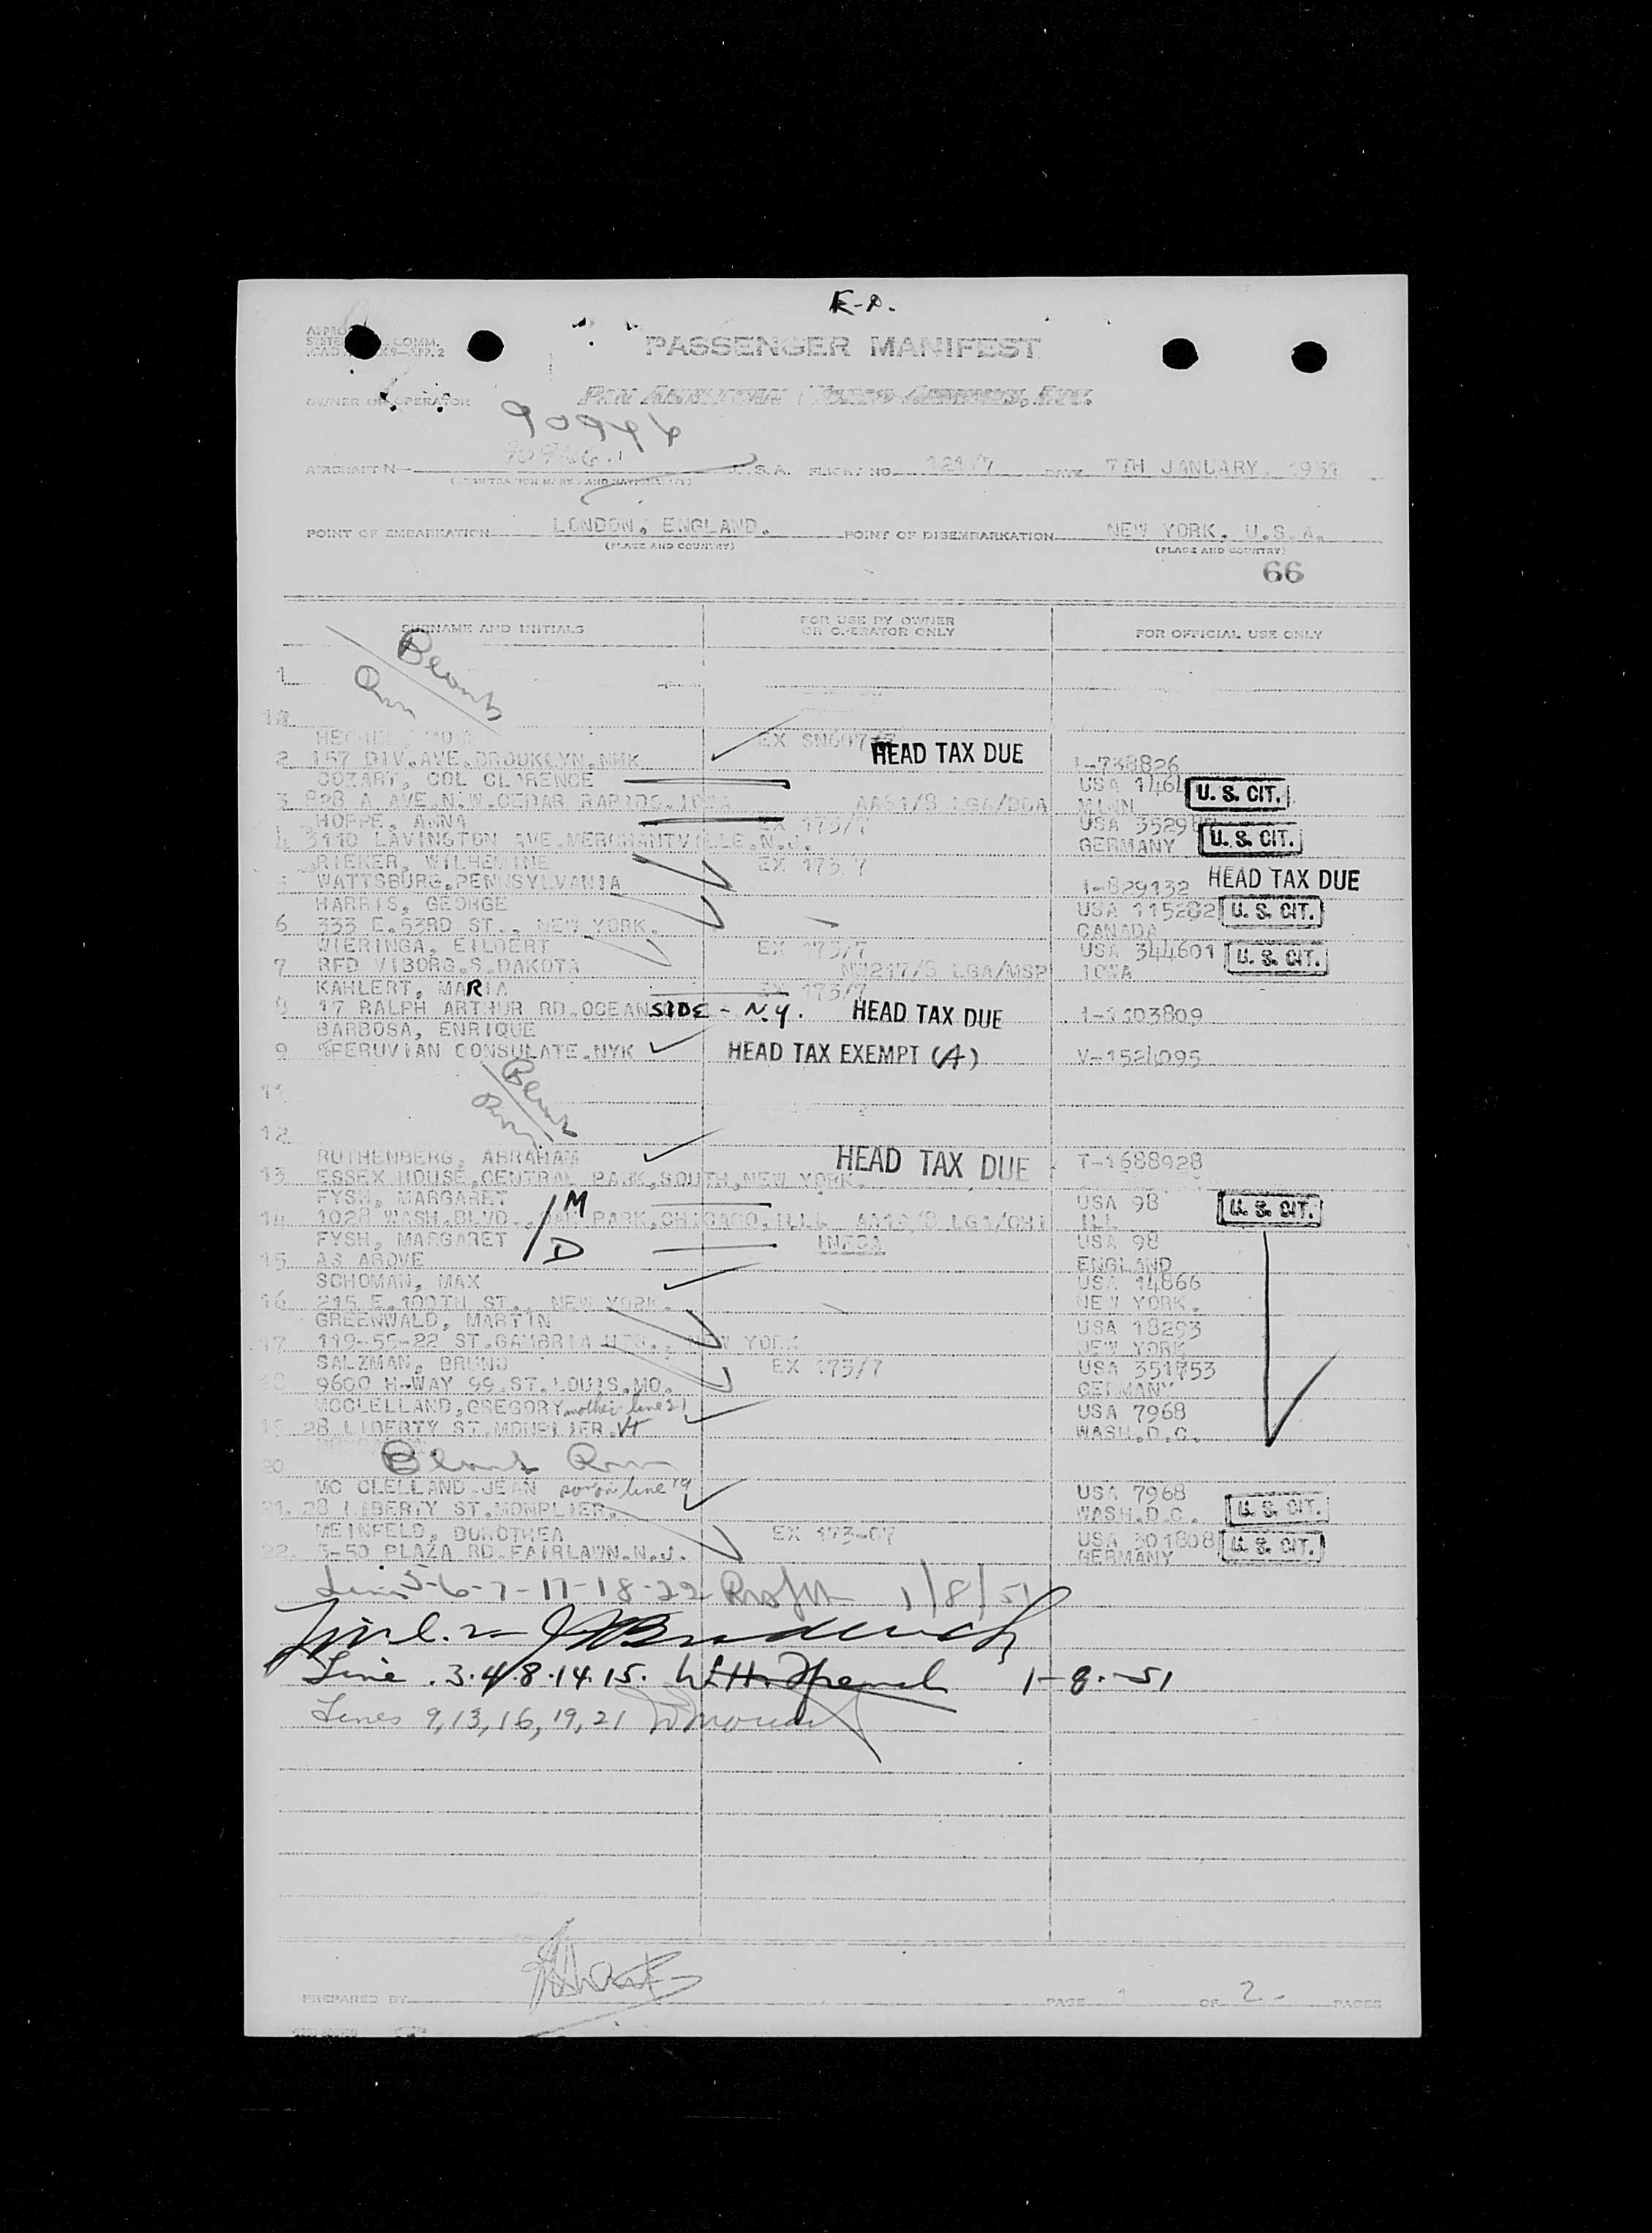 E-A.
PASSENGER MANIFEST
OWNER OR OPERATOR
90944
AIRCRAFT N U.S.A. FLIGHT NO. 121/7 DATE 7TH JANUARY, 1951
(REGISTRATION MARKS AND NATIONALITY)
POINT OF EMBARKATION LONDON, ENGLAND. POINT OF DISEMBARKATION NEW YORK, U.S.A.
(PLACE AND COUNTRY) (PLACE AND COUNTRY)
66
SURNAME AND INITIALS FOR USE BY OWNER OR OPERATOR ONLY FOR OFFICIAL USE ONLY
Blank
1
EX HEAD TAX DUE
2 157 DIV.AVE.BROOKLYN.NMK I-738826
COZART, COL CLARENCE USA 1464 U. S. CIT.
3 828 A AVE.N.W.CEDAR RAPIDS.IOWA AA61/8 LGA/DCA MINN
HOPPE, ANNA EX 173/7 USA U. S. CIT.
4 3110 LAVINGTON AVE.MERCHANTVILLE.N.J. GERMANY
RIEKER, WILHEMINE EX 173/7
5 WATTSBURG.PENNSYLVANIA I-829132 HEAD TAX DUE
HARRIS, GEORGE USA 115202 U. S. CIT.
6 333 E.53RD ST., NEW YORK. CANADA
WIERINGA, EILDERT EX 173/7 USA 344601 U. S. CIT.
7 RFD VIBORG.S.DAKOTA NW217/8 LGA/MSP IOWA
KAHLERT, MARIA EX 173/7
8 17 RALPH ARTHUR RD.OCEANSIDE - N.Y. HEAD TAX DUE I-1103809
BARBOSA, ENRIQUE
9 %PERUVIAN CONSULATE.NYK HEAD TAX EXEMPT (A) V-1524095
Blank
11
12
RUTHENBERG, ABRAHAM HEAD TAX DUE T-1688928
13 ESSEX HOUSE,CENTRAL PARK,SOUTH,NEW YORK.
FYSH, MARGARET M USA 98 U. S. CIT.
14 1028 WASH.BLVD., OAK PARK,CHICAGO,ILLL LGA/CHI ILL
FYSH, MARGARET D USA 98
15 AS ABOVE ENGLAND
SCHOMAN, MAX USA 14866
16 215 E.100TH ST., NEW YORK. NEW YORK.
GREENWALD, MARTIN USA 18293
17 119-55-22 ST.CAMBRIA HTS., NEW YORK NEW YORK
SALZMAN, BRUNO EX 173/7 USA 351753
18 9600 H-WAY 99.ST.LOUIS.MO. GERMANY
MCCLELLAND,GREGORY mother line 21 USA 7968
19 28 LIBERTY ST.MONPLIER.Vt WASH.D.C.
20 Blank
MC CLELLAND.JEAN son on line 19 USA 7968
21. 28 LIBERTY ST.MONPLIER. WASH.D.C. U. S. CIT.
MEINFELD, DOROTHEA EX 173-07 USA 301808 U. S. CIT.
22. 3-50 PLAZA RD.FAIRLAWN.N.J. GERMANY
Lines 5-6-7-17-18-22 1/8/51
Line. 2
Line .3.4.8.14.15. 1-8-51
Lines 9,13,16,19,21
PREPARED BY PAGE 1 OF 2 PAGES